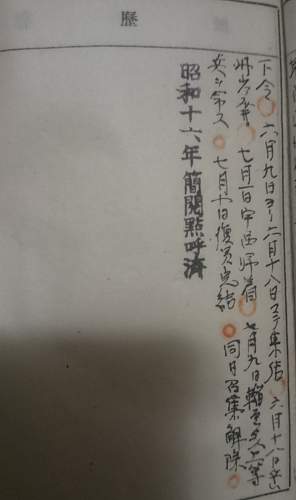 歷
下令 六月九日ヨリ六月十八日マデ集結 六月十八日
州出発 七月一日宇品帰着 七月九日輜重兵上等
兵ヲ命ス 七月十日復員完結 同日召集解除
昭和十六年簡閱點呼濟